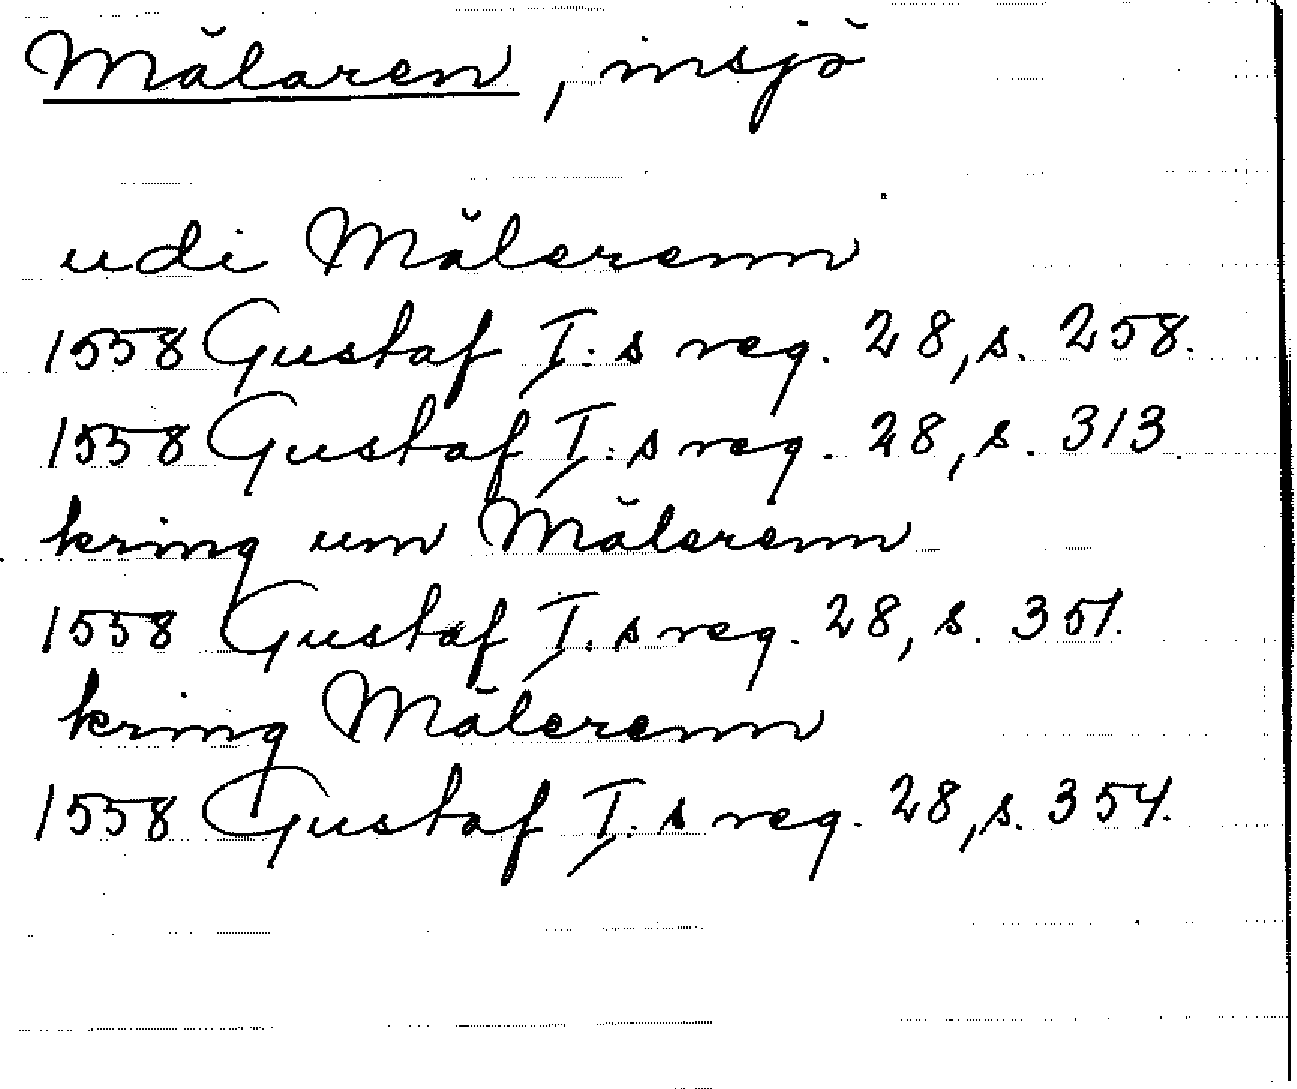 Mälaren, insjö
udi Mälerenn
1558 Gustaf I:s reg. 28, s. 258.
1558 Gustaf I:s reg. 28, s. 313.
kring um Mälerenn
1558 Gustaf I:s reg. 28, s. 351.
kring Mälerenn
1558 Gustaf I:s reg. 28, s. 354.